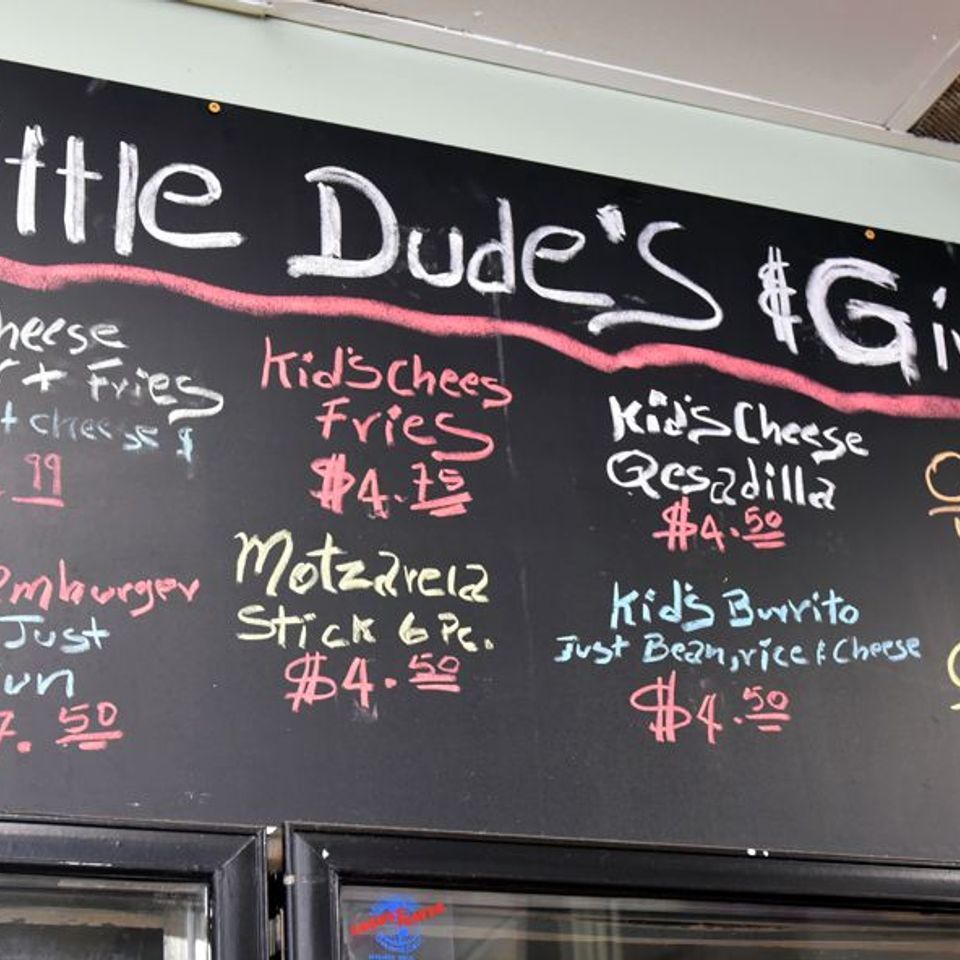 ttle Dude's & Gi
heese
r + Fries
t cheese $
.99
Kid's Chees
Fries
$4.75
Kid's Cheese
Qesadilla
$4.50
mburger
Just
un
7.50
Motzarela
Stick 6 Pc.
$4.50
Kid's Burrito
Just Bean, rice & Cheese
$4.50